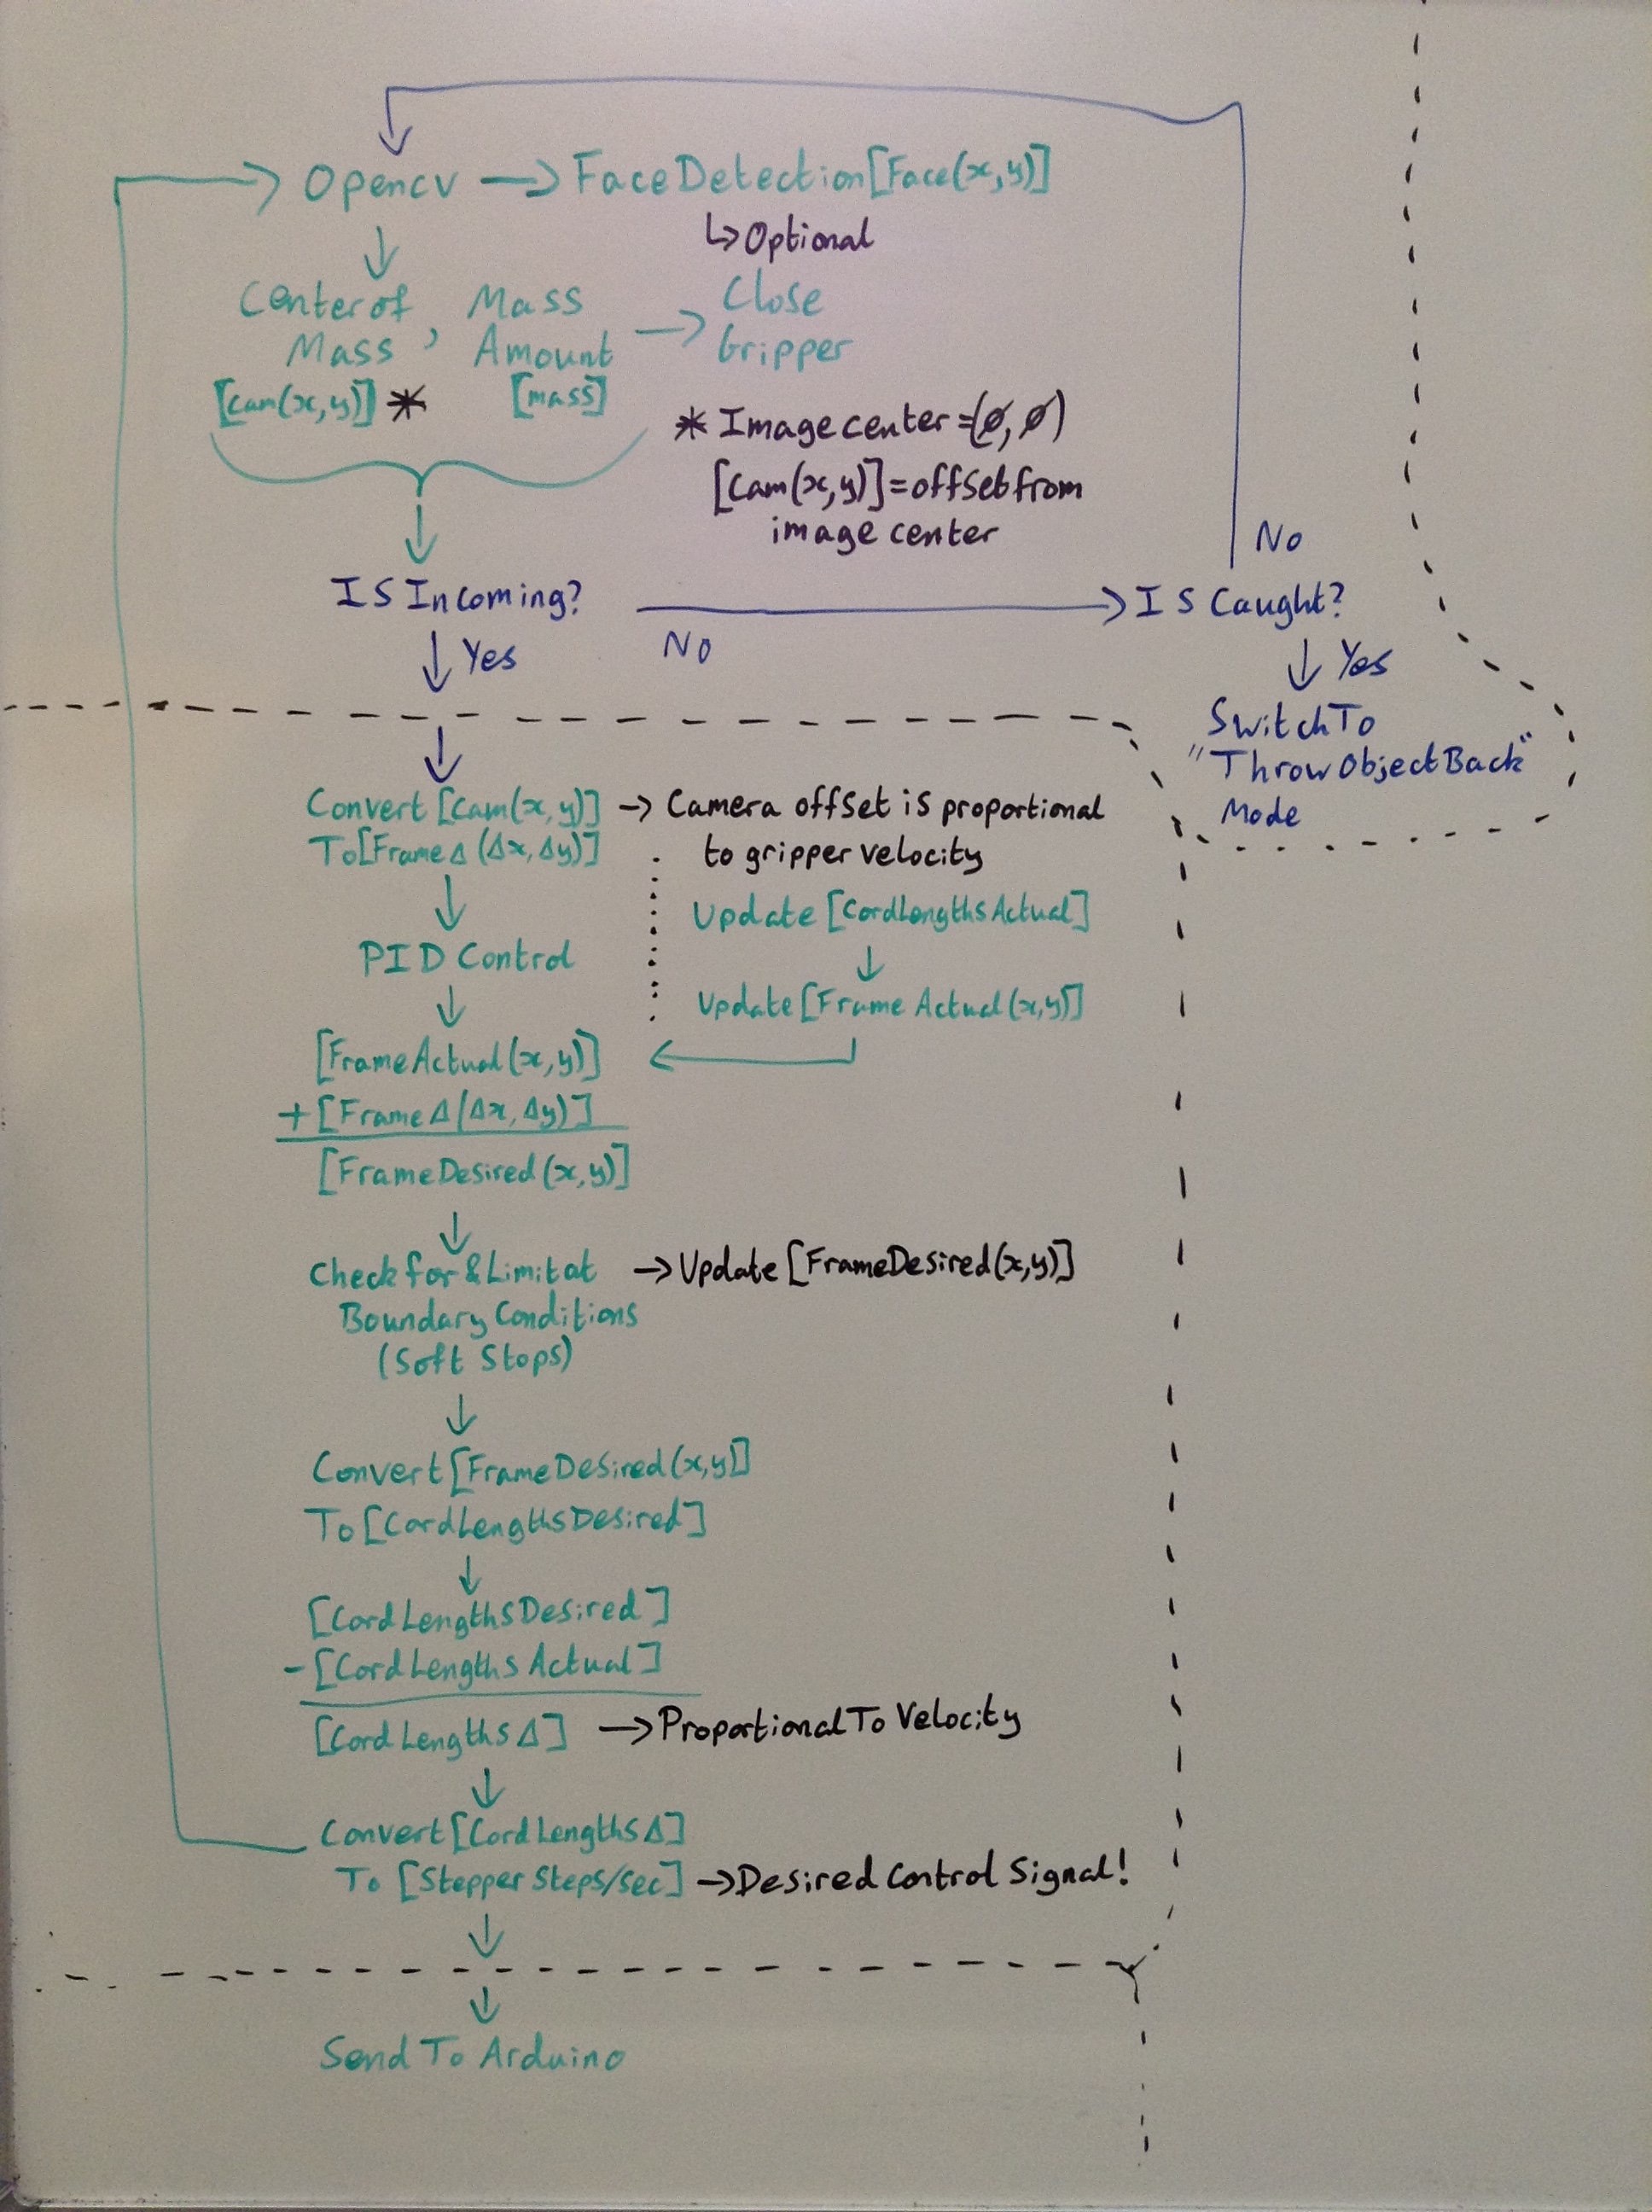 Opencv → FaceDetection[Face(x,y)]
↳ Optional
Center of Mass, Mass Amount → Close Gripper
[Cam(x,y)] * [mass]
* Image center = (0,0)
[Cam(x,y)] = offset from
image center
Is Incoming?
No
Is Caught?
No
Yes
Yes
Switch To
"ThrowObjectBack"
Mode
Convert [Cam(x,y)] → Camera offset is proportional
To [Frame Δ (Δx, Δy)]
to gripper velocity
Update [CordLengthsActual]
PID Control
Update [Frame Actual(x,y)]
[FrameActual(x,y)]
+ [Frame Δ (Δx, Δy)]
[FrameDesired(x,y)]
Check for & Limit at → Update [FrameDesired(x,y)]
Boundary Conditions
(Soft Stops)
Convert [FrameDesired(x,y)]
To [CordLengthsDesired]
[CordLengthsDesired]
- [CordLengthsActual]
[CordLengthsΔ] → Proportional To Velocity
Convert [CordLengthsΔ]
To [Stepper Steps/sec] → Desired Control Signal!
Send To Arduino